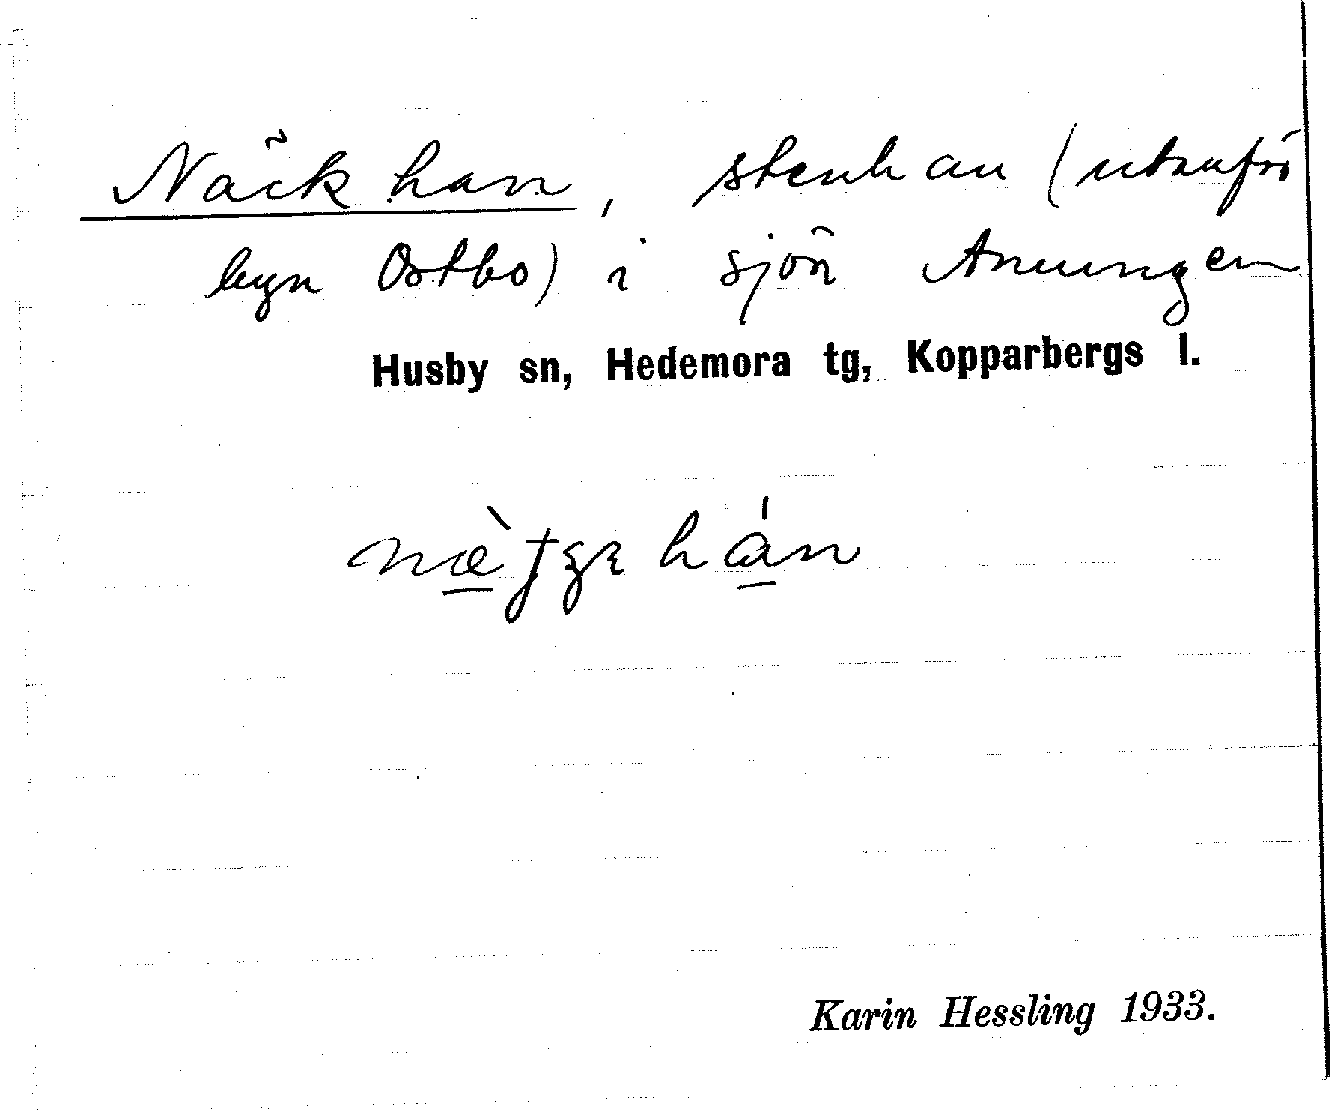 Näckhan, stenhan (utanför
byn Ostbo) i sjön Amungen
Husby sn, Hedemora tg, Kopparbergs l.
Karin Hessling 1933.